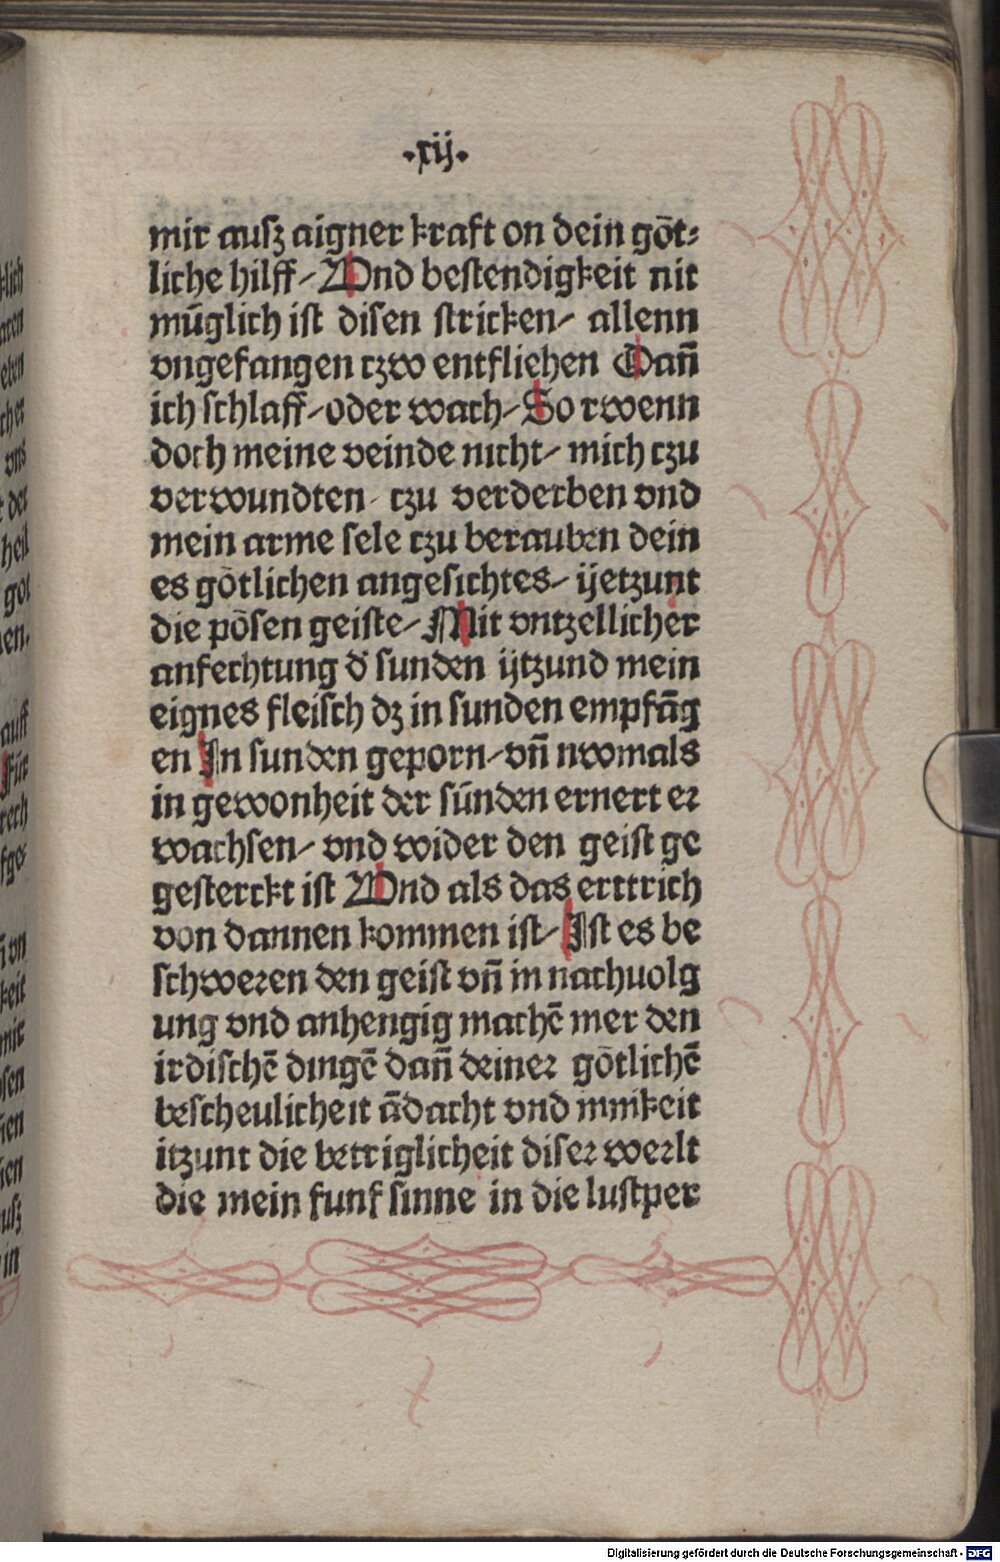 ·xij·
mir ausz aigner kraft on dein göt⸗
liche hilff / Vnd bestendigkeit nit
mūglich ist disen stricken / allenn
vngefangen tzw entfliehen Dañ
ich schlaff / oder wach / So rwenn
doch meine veinde nicht / mich tzu
verwundten / tzu verderben vnd
mein arme sele tzu berauben dein
es götlichen angesichtes / ÿetzunt
die pösen geiste / Mit vntzellicher
anfechtung d' sunden ijtzund mein
eignes fleisch dz in sunden empfāg
en In sunden geporn / vñ nwomals
in gewonheit der sünden ernert er
wachsen / vnd wider den geist ge
gesterckt ist Vnd als das erttrich
von dannen kommen ist / Ist es be
schweren den geist vñ in nachuolg
ung vnd anhengig machē mer den
irdischē dingē dañ deiner götlichē
bescheulicheit ādacht vnd innikeit
itzunt die betriglicheit diser werlt
die mein funf sinne in die lustper
klich
aren
elen
cher
vns
der
heil
got
en.
auff
Für
rech
fge⸗
vn
keit
mir
sen
ien
usz
in
Digitalisierung gefördert durch die Deutsche Forschungsgemeinschaft - DFG